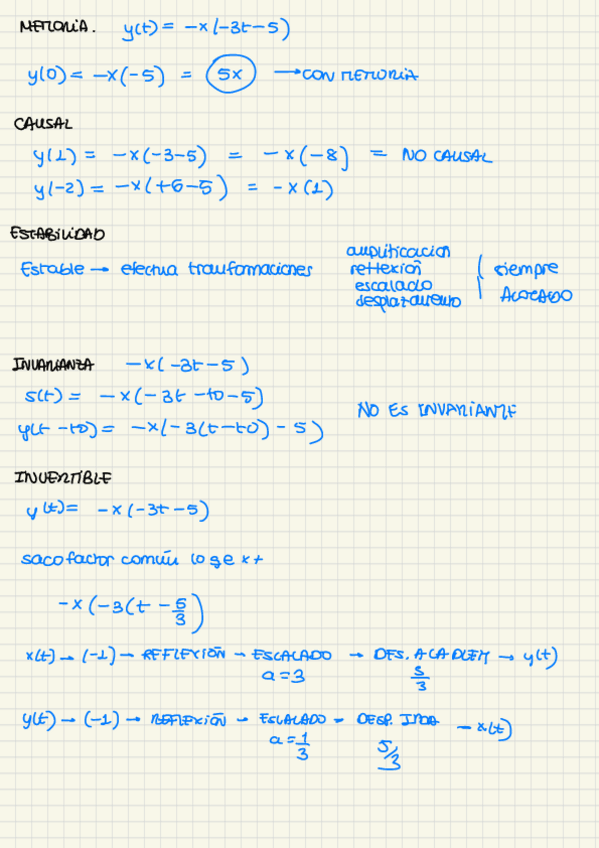 MEMORIA. y(t) = -x(-3t-5)
y(0) = -x(-5) = 5x → CON MEMORIA
CAUSAL
y(1) = -x(-3-5) = -x(-8) = NO CAUSAL
y(-2) = -x(+6-5) = -x(1)
ESTABILIDAD
Estable → efectua tranformaciones amplificación
reflexión
escalado
desplazamiento
siempre
ACOTADO
INVARIANZA -x(-3t-5)
s(t) = -x(-3t-t0-5)
y(t-t0) = -x(-3(t-t0)-5)
NO ES INVARIANTE
INVERTIBLE
y(t) = -x(-3t-5)
saco factor común lo que x t
-x(-3(t-5/3)
x(t) → (-1) → REFLEXIÓN → ESCALADO → DES. A LA → y(t)
a=3 5/3
y(t) → (-1) → REFLEXIÓN → ESCALADO - DESP. - x(t)
a=1/3 5/3